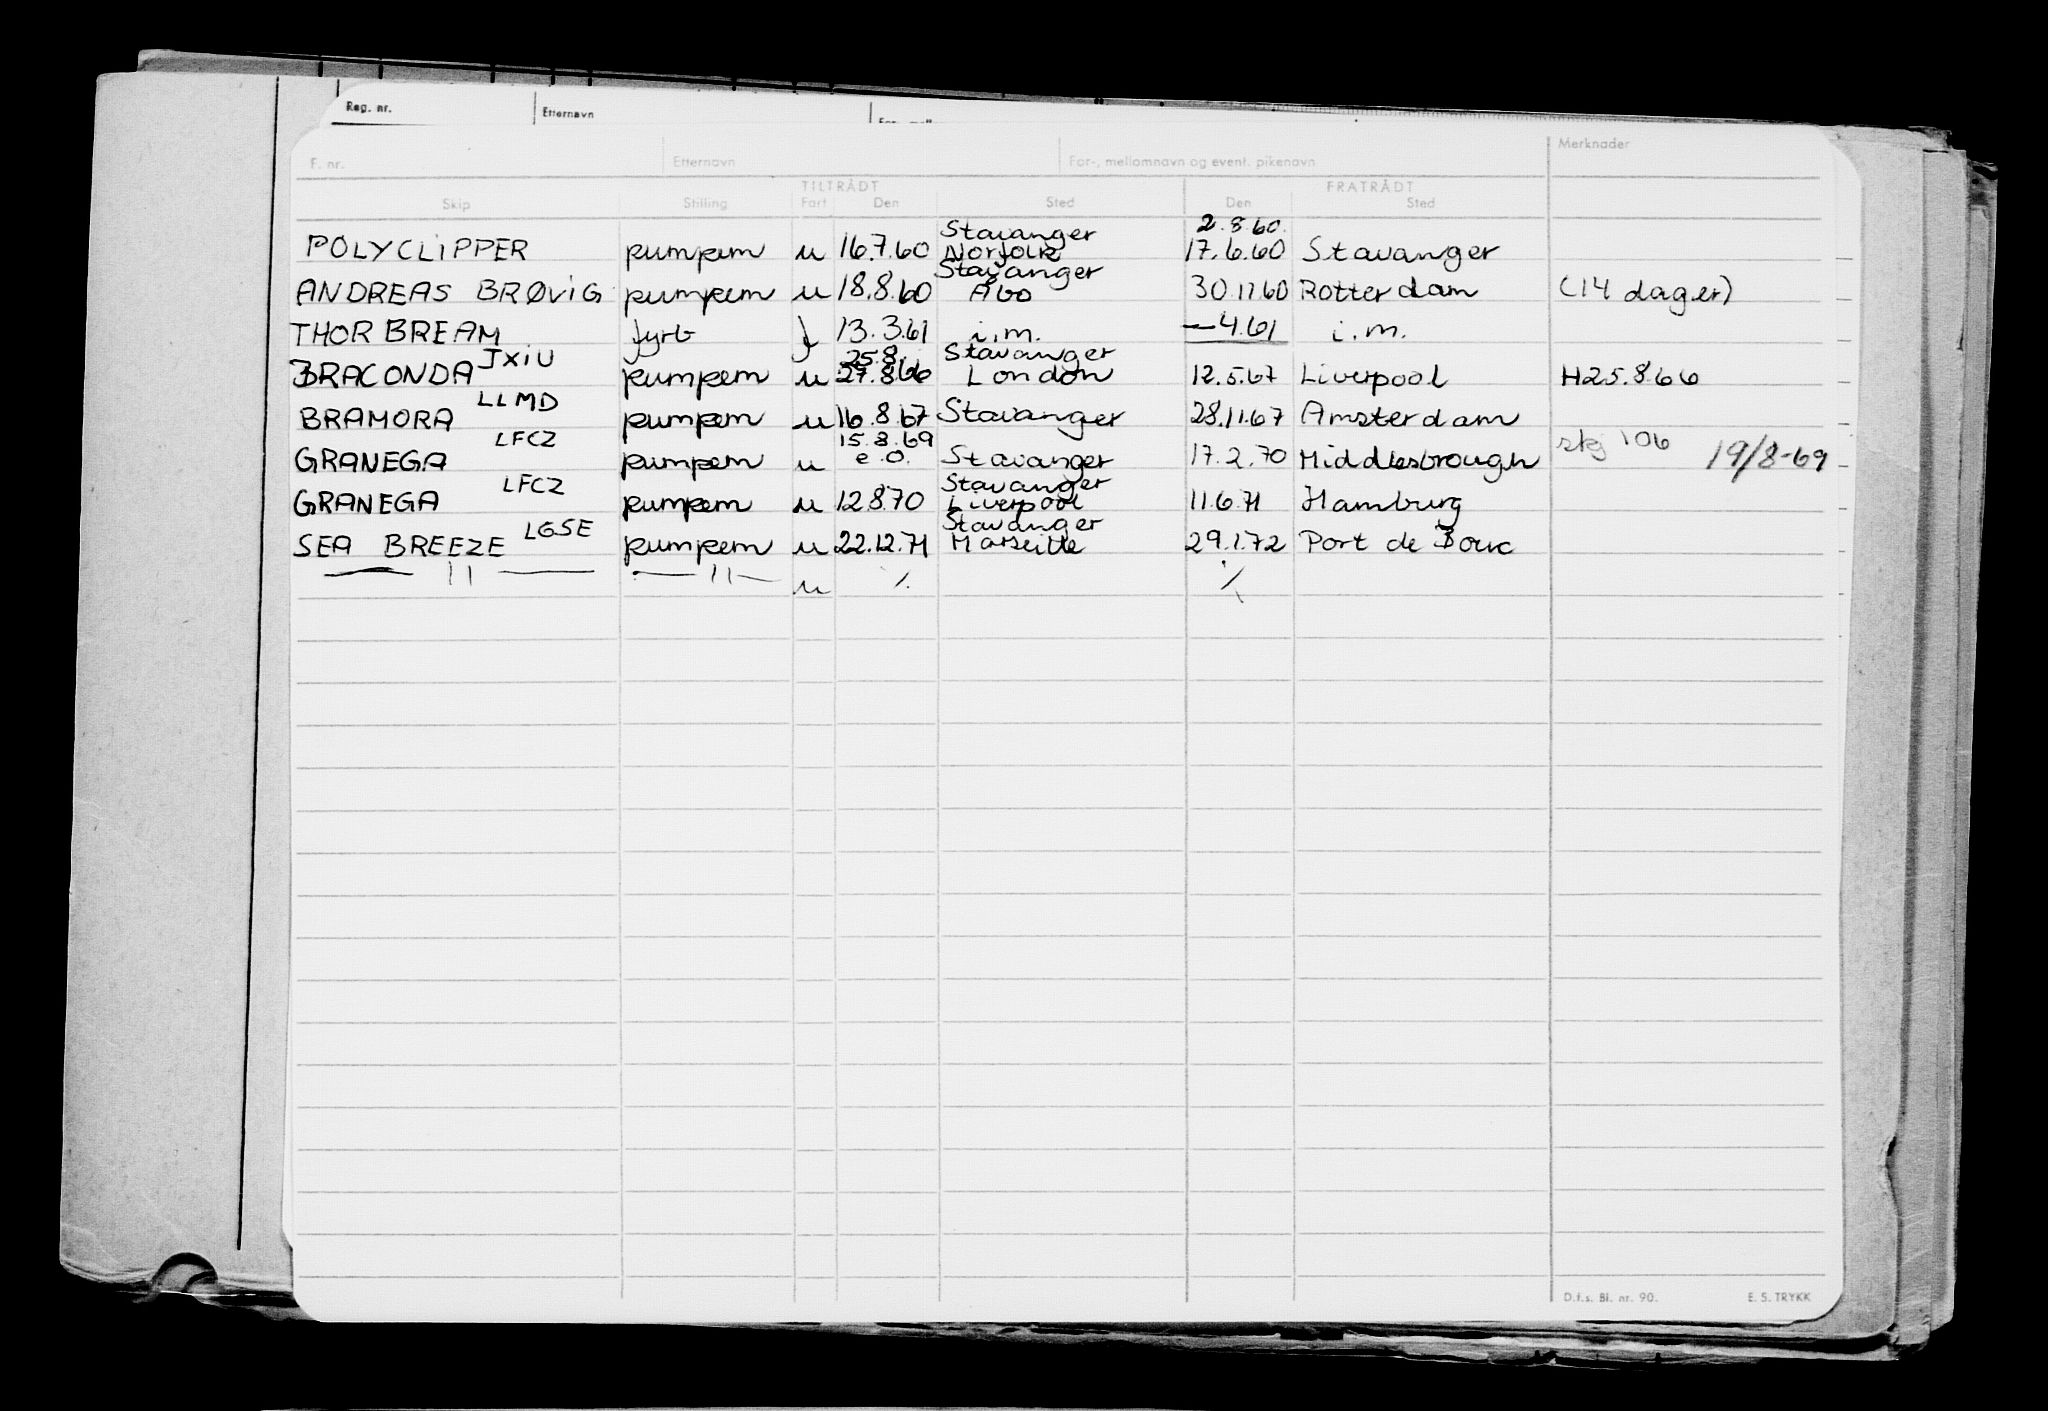 Reg. nr. Etternavn
F. nr. Etternavn For-, mellomnavn og event. pikenavn Merknader
TILTRÅDT FRATRÅDT
Skip Stilling Fart Den Sted Den Sted
Stavanger 2.8.60.
POLYCLIPPER pumpem u 16.7.60 Norfolk 17.6.60 Stavanger
Stavanger
ANDREAS BRØVIG pumpem u 18.8.60 Åbo 30.11.60 Rotterdam (14 dager)
THOR BREAM fyrb } 13.3.61 i.m. —4.61 i.m.
JXIU 25.8. Stavanger
BRACONDA pumpem u 27.8.66 London 12.5.67 Liverpool H25.8.66
LLMD
BRAMORA pumpem u 16.8.67 Stavanger 28.11.67 Amsterdam
LFCZ 15.8.69
GRANEGA pumpem u e.o. Stavanger 17.2.70 Middlesbrough skj 106 19/8-69
LFCZ Stavanger
GRANEGA pumpem u 12.8.70 Liverpool 11.6.71 Hamburg
LGSE Stavanger
SEA BREEZE pumpem u 22.12.71 Marseille 29.1.72 Port de Bouc
— 11 — — 11 — u ⁒ ⁒
D.f.s. Bl. nr. 90. E. S. TRYKK